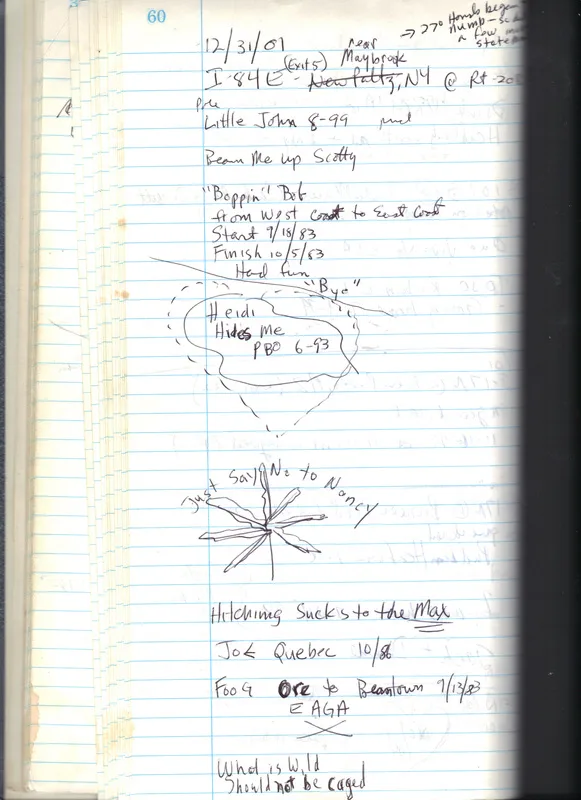 60
→ 27° Hands began
numb - 
a few
state
12/31/01
near
(Exit 5) Maybrook
I-84E - New Paltz, NY @ Rt. 208
Little John 8-99
Beam Me up Scotty
"Boppin" Bob
from West Coast to East Coast
Start 9/18/83
Finish 10/5/83
Had fun
"Bye"
Heidi
Hides Me
PBO 6-93
Just Say No to Nancy
Hitching Sucks to the Max
Joe Quebec 10/86
Foog Ore to Beantown 9/13/83
E AGA
What is Wild
Should not be caged